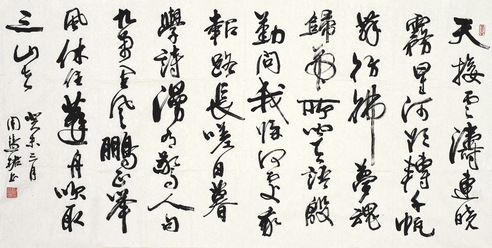 天接雲濤連曉
霧星河欲轉千帆
舞彷彿夢魂
歸帝所聞天語殷
勤問我歸何處我
報路長嗟日暮
學詩漫有驚人句
九萬里風鵬正舉
風休住蓬舟吹取
三山去
癸未三月
周